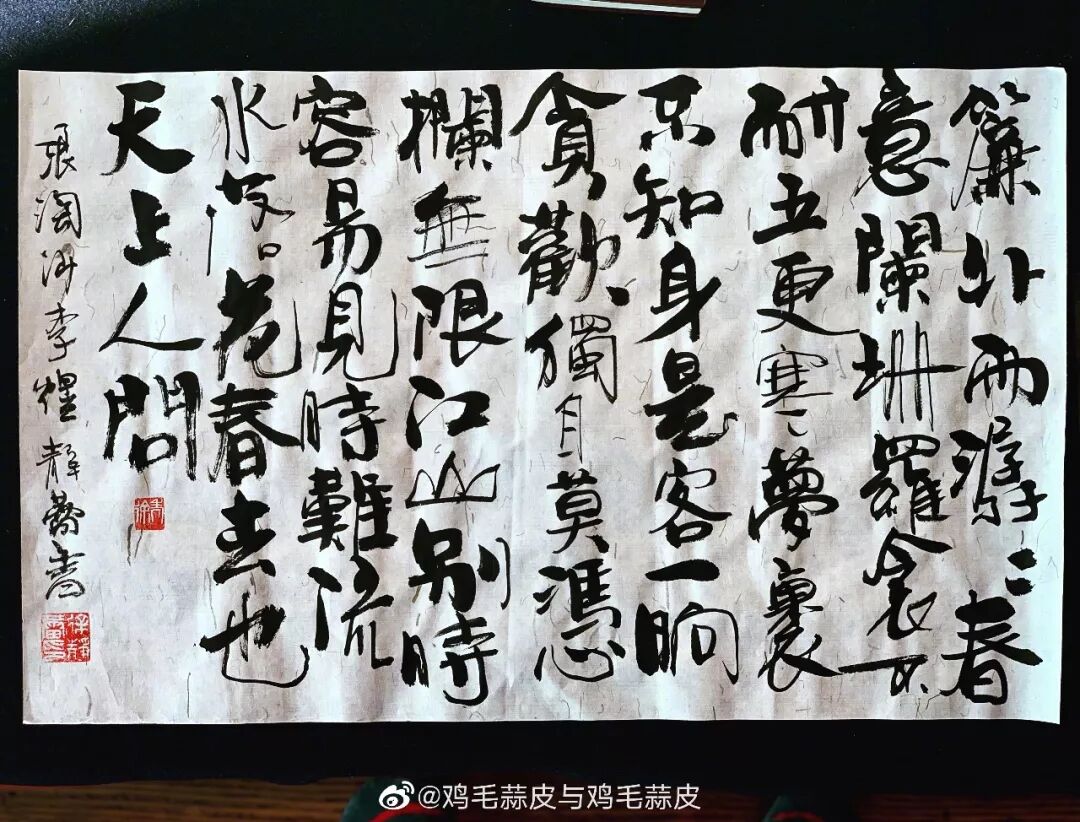 簾外雨潺〻春
意闌珊羅衾不
耐五更寒夢裏
不知身是客一晌
貪歡獨自莫憑
欄無限江山別時
容易見時難流
水落花春去也
天上人間
浪淘沙李煜靜蕾書
徐靜蕾印
@鸡毛蒜皮与鸡毛蒜皮